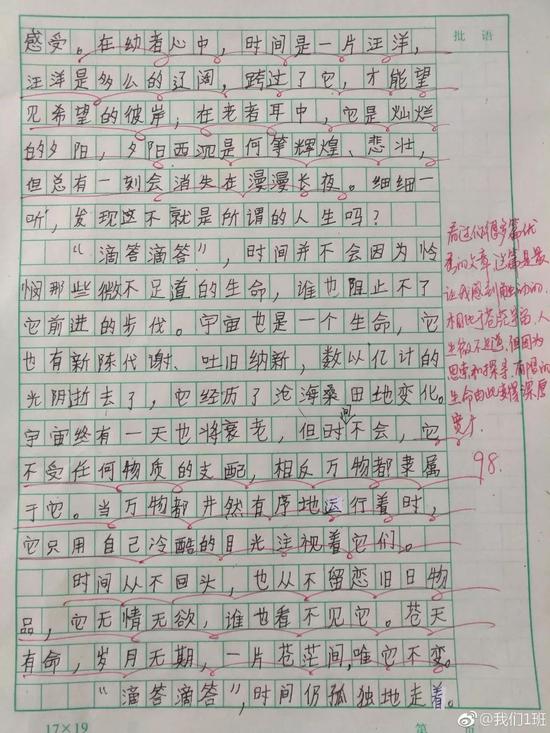 批 语
感受。在幼者心中，时间是一片汪洋，
汪洋是多么的辽阔，跨过了它，才能望
见希望的彼岸；在老者耳中，它是灿烂
的夕阳，夕阳西沉是何等辉煌、悲壮，
但总有一刻会消失在漫漫长夜。细细一
听，发现这不就是所谓的人生吗？
“滴答滴答”，时间并不会因为怜
悯那些微不足道的生命，谁也阻止不了
它前进的步伐。宇宙也是一个生命，它
也有新陈代谢、吐旧纳新，数以亿计的
光阴逝去了，它经历了沧海桑田地变化。
宇宙终有一天也将衰老，但时间不会，它
不受任何物质的支配，相反万物都隶属
于它。当万物都井然有序地运行着时，
它只用自己冷酷的目光注视着它们。
时间从不回头，也从不留恋旧日物
品，它无情无欲，谁也看不见它。苍天
有命，岁月无期，一片苍茫间，唯它不变。
“滴答滴答”，时间仍孤独地走着。
看过你很多篇优
秀的文章，这篇是最
让我感到触动的，
相比于苍茫宇宙，人
生微不足道，但因为
思考和探寻，有限的
生命由此变得深厚
宽广
98.
17×19
第 页
@我们1班